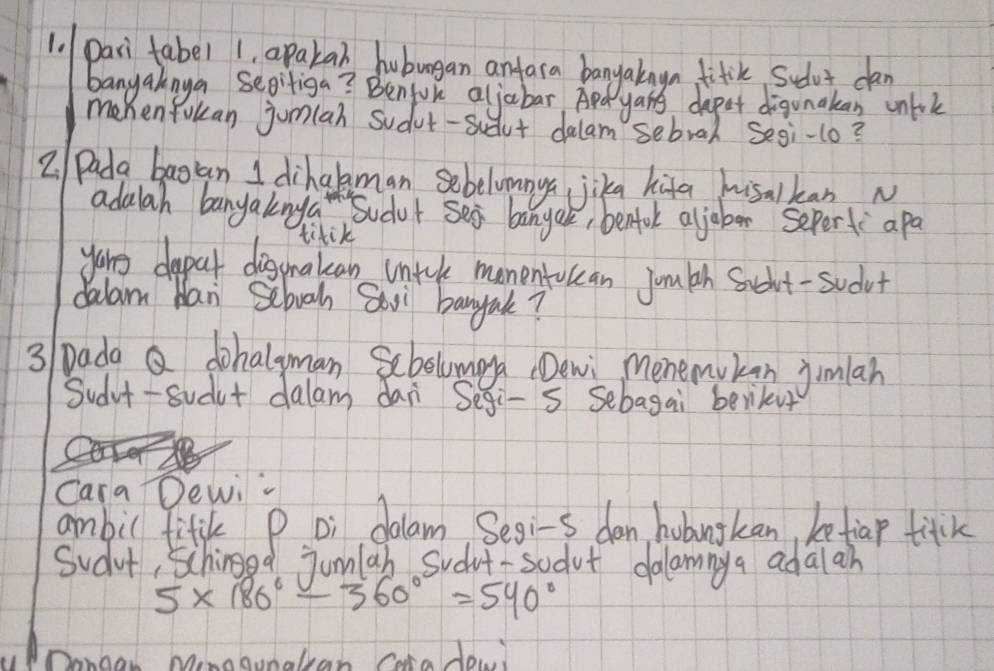 1. Dari tabel 1, apakah hubungan antara banyaknya titik sudut dan
banyaknya segitiga? Bentuk aljabar Apa yang dapat digunakan untuk
menentukan jumlah sudut-sudut dalam sebuah segi-10?
2. Pada bagian 1 dihalaman sebelumnya, jika kita misalkan N
adalah banyaknya titik sudut segi banyak, bentuk aljabar seperti apa
yang dapat digunakan untuk menentukan jumlah sudut-sudut
dalam dari sebuah segi banyak?
3 Pada Q dihalaman sebelumnya, Dewi menemukan jumlah
sudut-sudut dalam dari segi-5 sebagai berikut
Cara Dewi:
ambil titik P Di dalam segi-5 dan hubungkan ke tiap titik
sudut, sehingga jumlah sudut-sudut dalamnya adalah
5 × 180° - 360° = 540°
4 Dengan menggunakan cara dewi